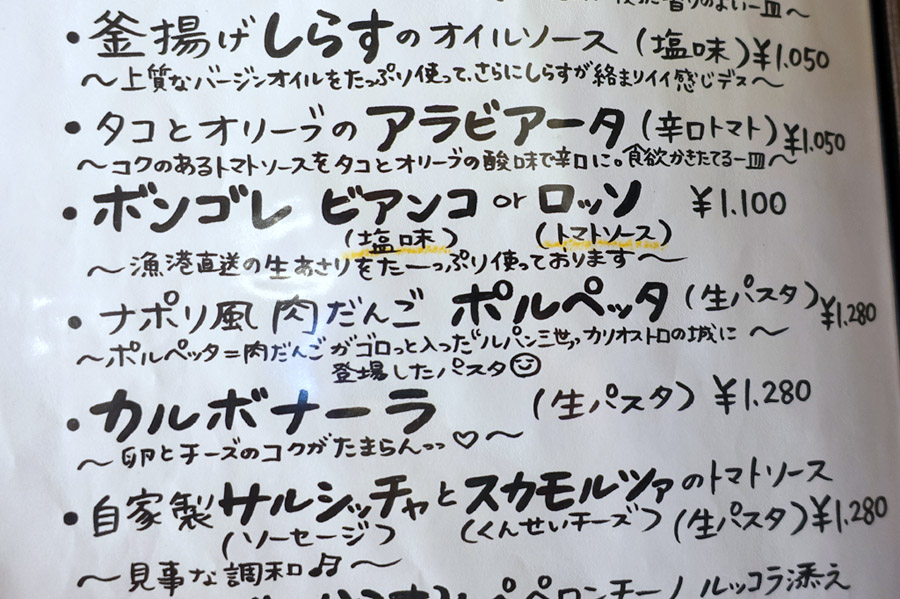 香りのよい一皿〜
・釜揚げしらすのオイルソース (塩味) ¥1.050
〜上質なバージンオイルをたっぷり使って、さらにしらすが絡まりイイ感じデス〜
・タコとオリーブのアラビアータ (辛口トマト) ¥1.050
〜コクのあるトマトソースをタコとオリーブの酸味で辛口に。食欲かきたてる一皿〜
・ボンゴレ ビアンコ or ロッソ ¥1.100
(塩味) (トマトソース)
〜漁港直送の生あさりをた一っぷり使っております〜
・ナポリ風 肉だんご ポルペッタ (生パスタ) ¥1.280
〜ポルペッタ=肉だんごがゴロっと入った"ルパン三世"カリオストロの城に〜
登場したパスタ☺
・カルボナーラ (生パスタ) ¥1.280
〜卵とチーズのコクがたまらんっっ♡〜
・自家製サルシッチャとスカモルツァのトマトソース
(ソーセージ) (くんせいチーズ) (生パスタ) ¥1.280
〜見事な調和♫〜
ペペロンチーノ ルッコラ添え